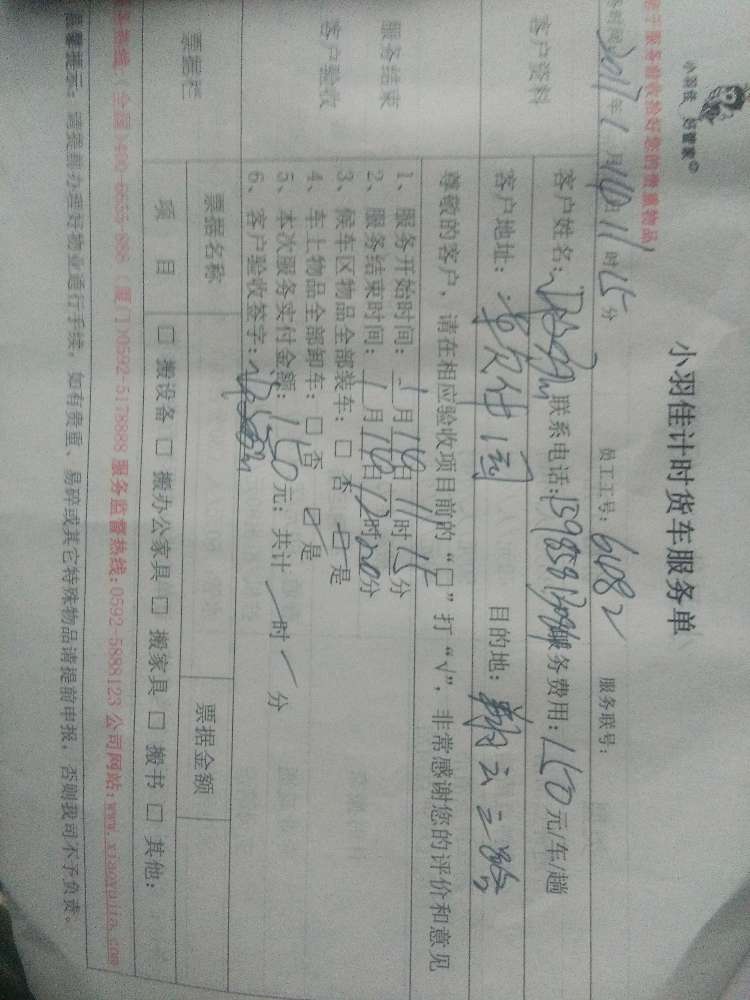 小羽佳 好管家
小羽佳计时货车服务单
于服务验收给好您的贵重物品
时间 2017年1月16日11时15分 员工工号：6082 服务联号：
客户资料
客户姓名： 联系电话： 服务费用：150元/车/趟
客户地址： 目的地：翔云三路
尊敬的客户，请在相应验收项目前的“口”打“√”，非常感谢您的评价和意见
服务结束
客户验收
1、服务开始时间：1月16日11时15分
2、服务结束时间：1月16日12时20分
3、候车区物品全部装车：□ 否 ☑ 是
4、车上物品全部卸车：□ 否 ☑ 是
5、本次服务实付金额：150元；共计 时 分
6、客户验收签字：
票据栏
票据名称 票据金额
项 目 □ 搬设备 □ 搬办公家具 □ 搬家具 □ 搬书 □ 其他：
热线：全国1400-6655-888（厦门）0592-5178888 服务监督热线：0592-5888123 公司网站：www.xiaoyujia.com
温馨提示：请提前办理好物业通行手续，如有贵重、易碎或其它特殊物品请提前申报，否则我司不予负责。